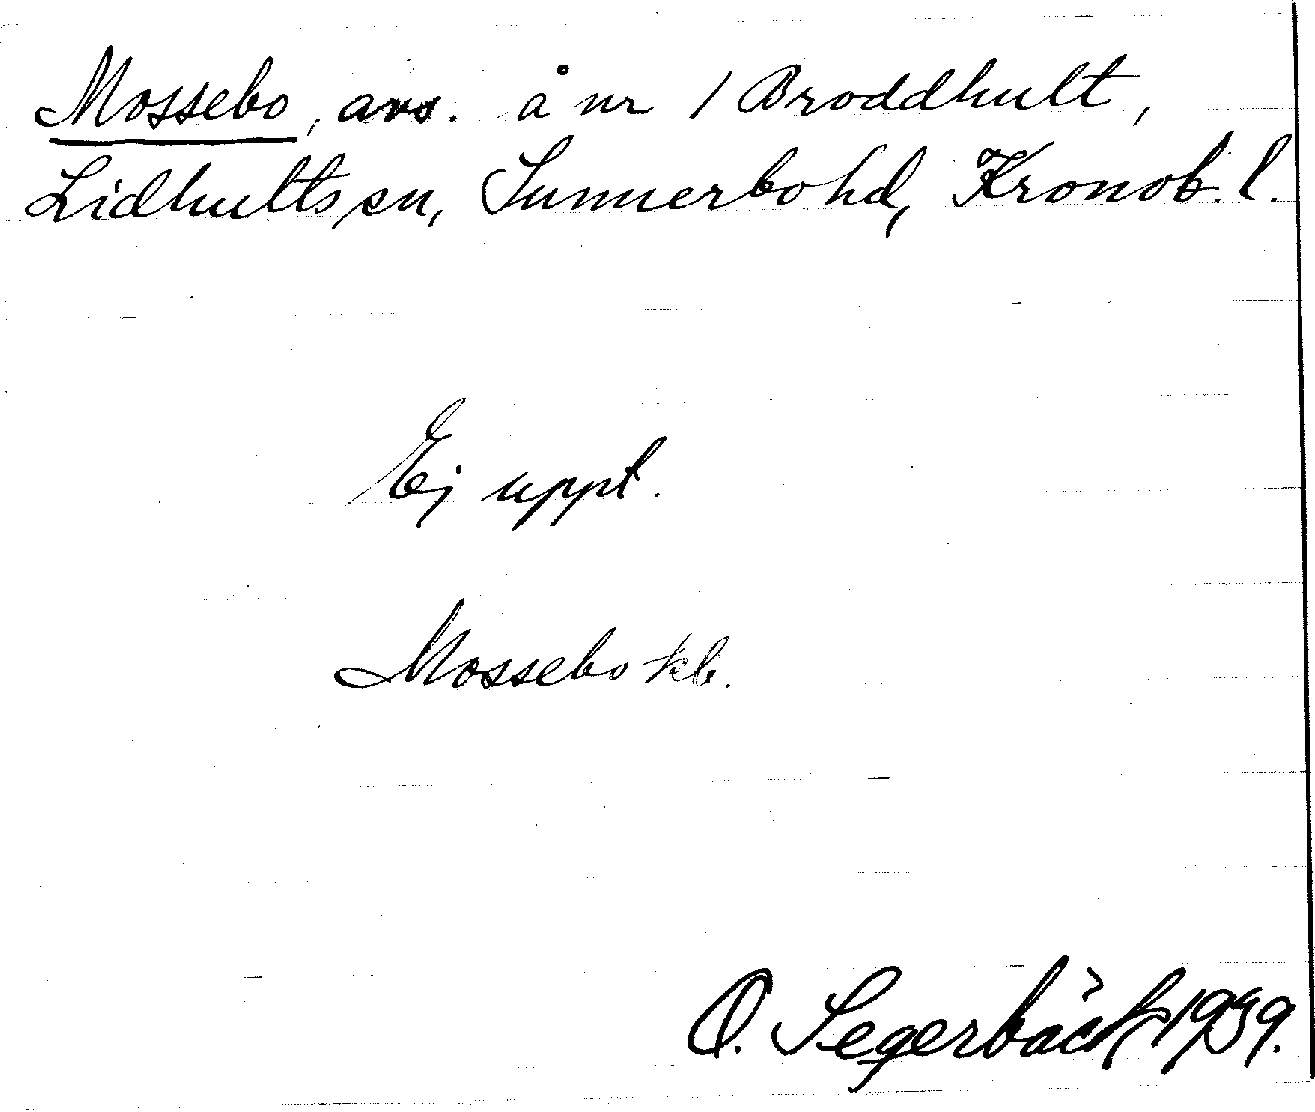 Mossebo, avs. å nr 1 Broddhult,
Lidhults sn, Sunnerbo hd, Kronob. l.
Ej uppt.
Mossebo kb.
O. Segerbäck 1939.